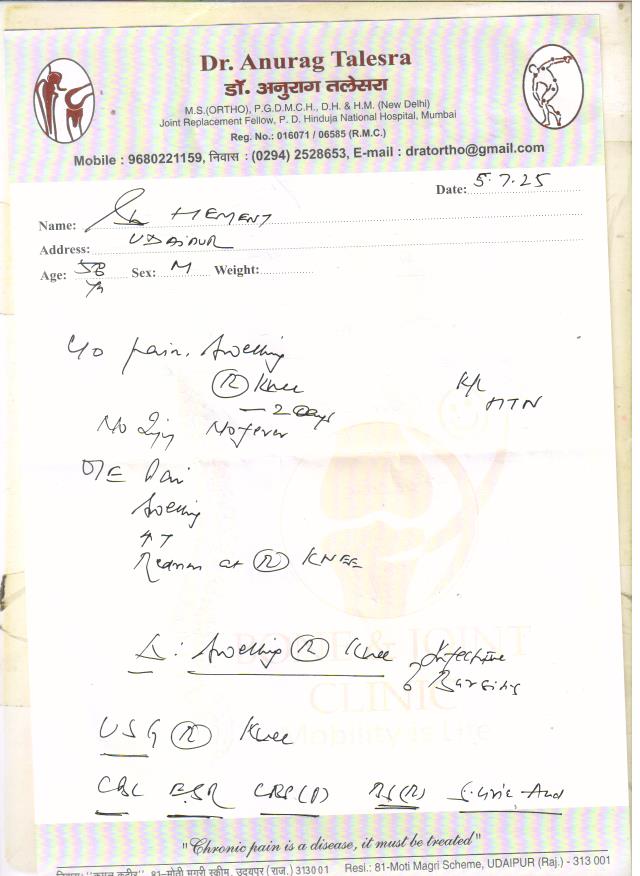 Dr. Anurag Talesra
डॉ. अनुराग तलेसरा
M.S.(ORTHO), P.G.D.M.C.H., D.H. & H.M. (New Delhi)
Joint Replacement Fellow, P. D. Hinduja National Hospital, Mumbai
Reg. No.: 016071 / 06585 (R.M.C.)
Mobile : 9680221159, निवास : (0294) 2528653, E-mail : dratortho@gmail.com
Date: 5.7.25
Name: Sh HEMENT
Address: UDAIPUR
Age: 58 Yr Sex: M Weight:
C/o pain, Swelling
(R) Knee
— 2 days
K/c
HTN
No Inj No fever
O/E Pain
Swelling
↑↑
Redness at (R) KNEE
Δ : Swelling (R) Knee
? Infective
Bursitis
BONE & JOINT
CLINIC
Mobility is Life
USG (R) Knee
CBC ESR CRP(P) BS(R) S. Uric-Acid
"Chronic pain is a disease, it must be treated"
81-मोती मगरी स्कीम, उदयपुर (राज.) 313001 Resi.: 81-Moti Magri Scheme, UDAIPUR (Raj.) - 313 001